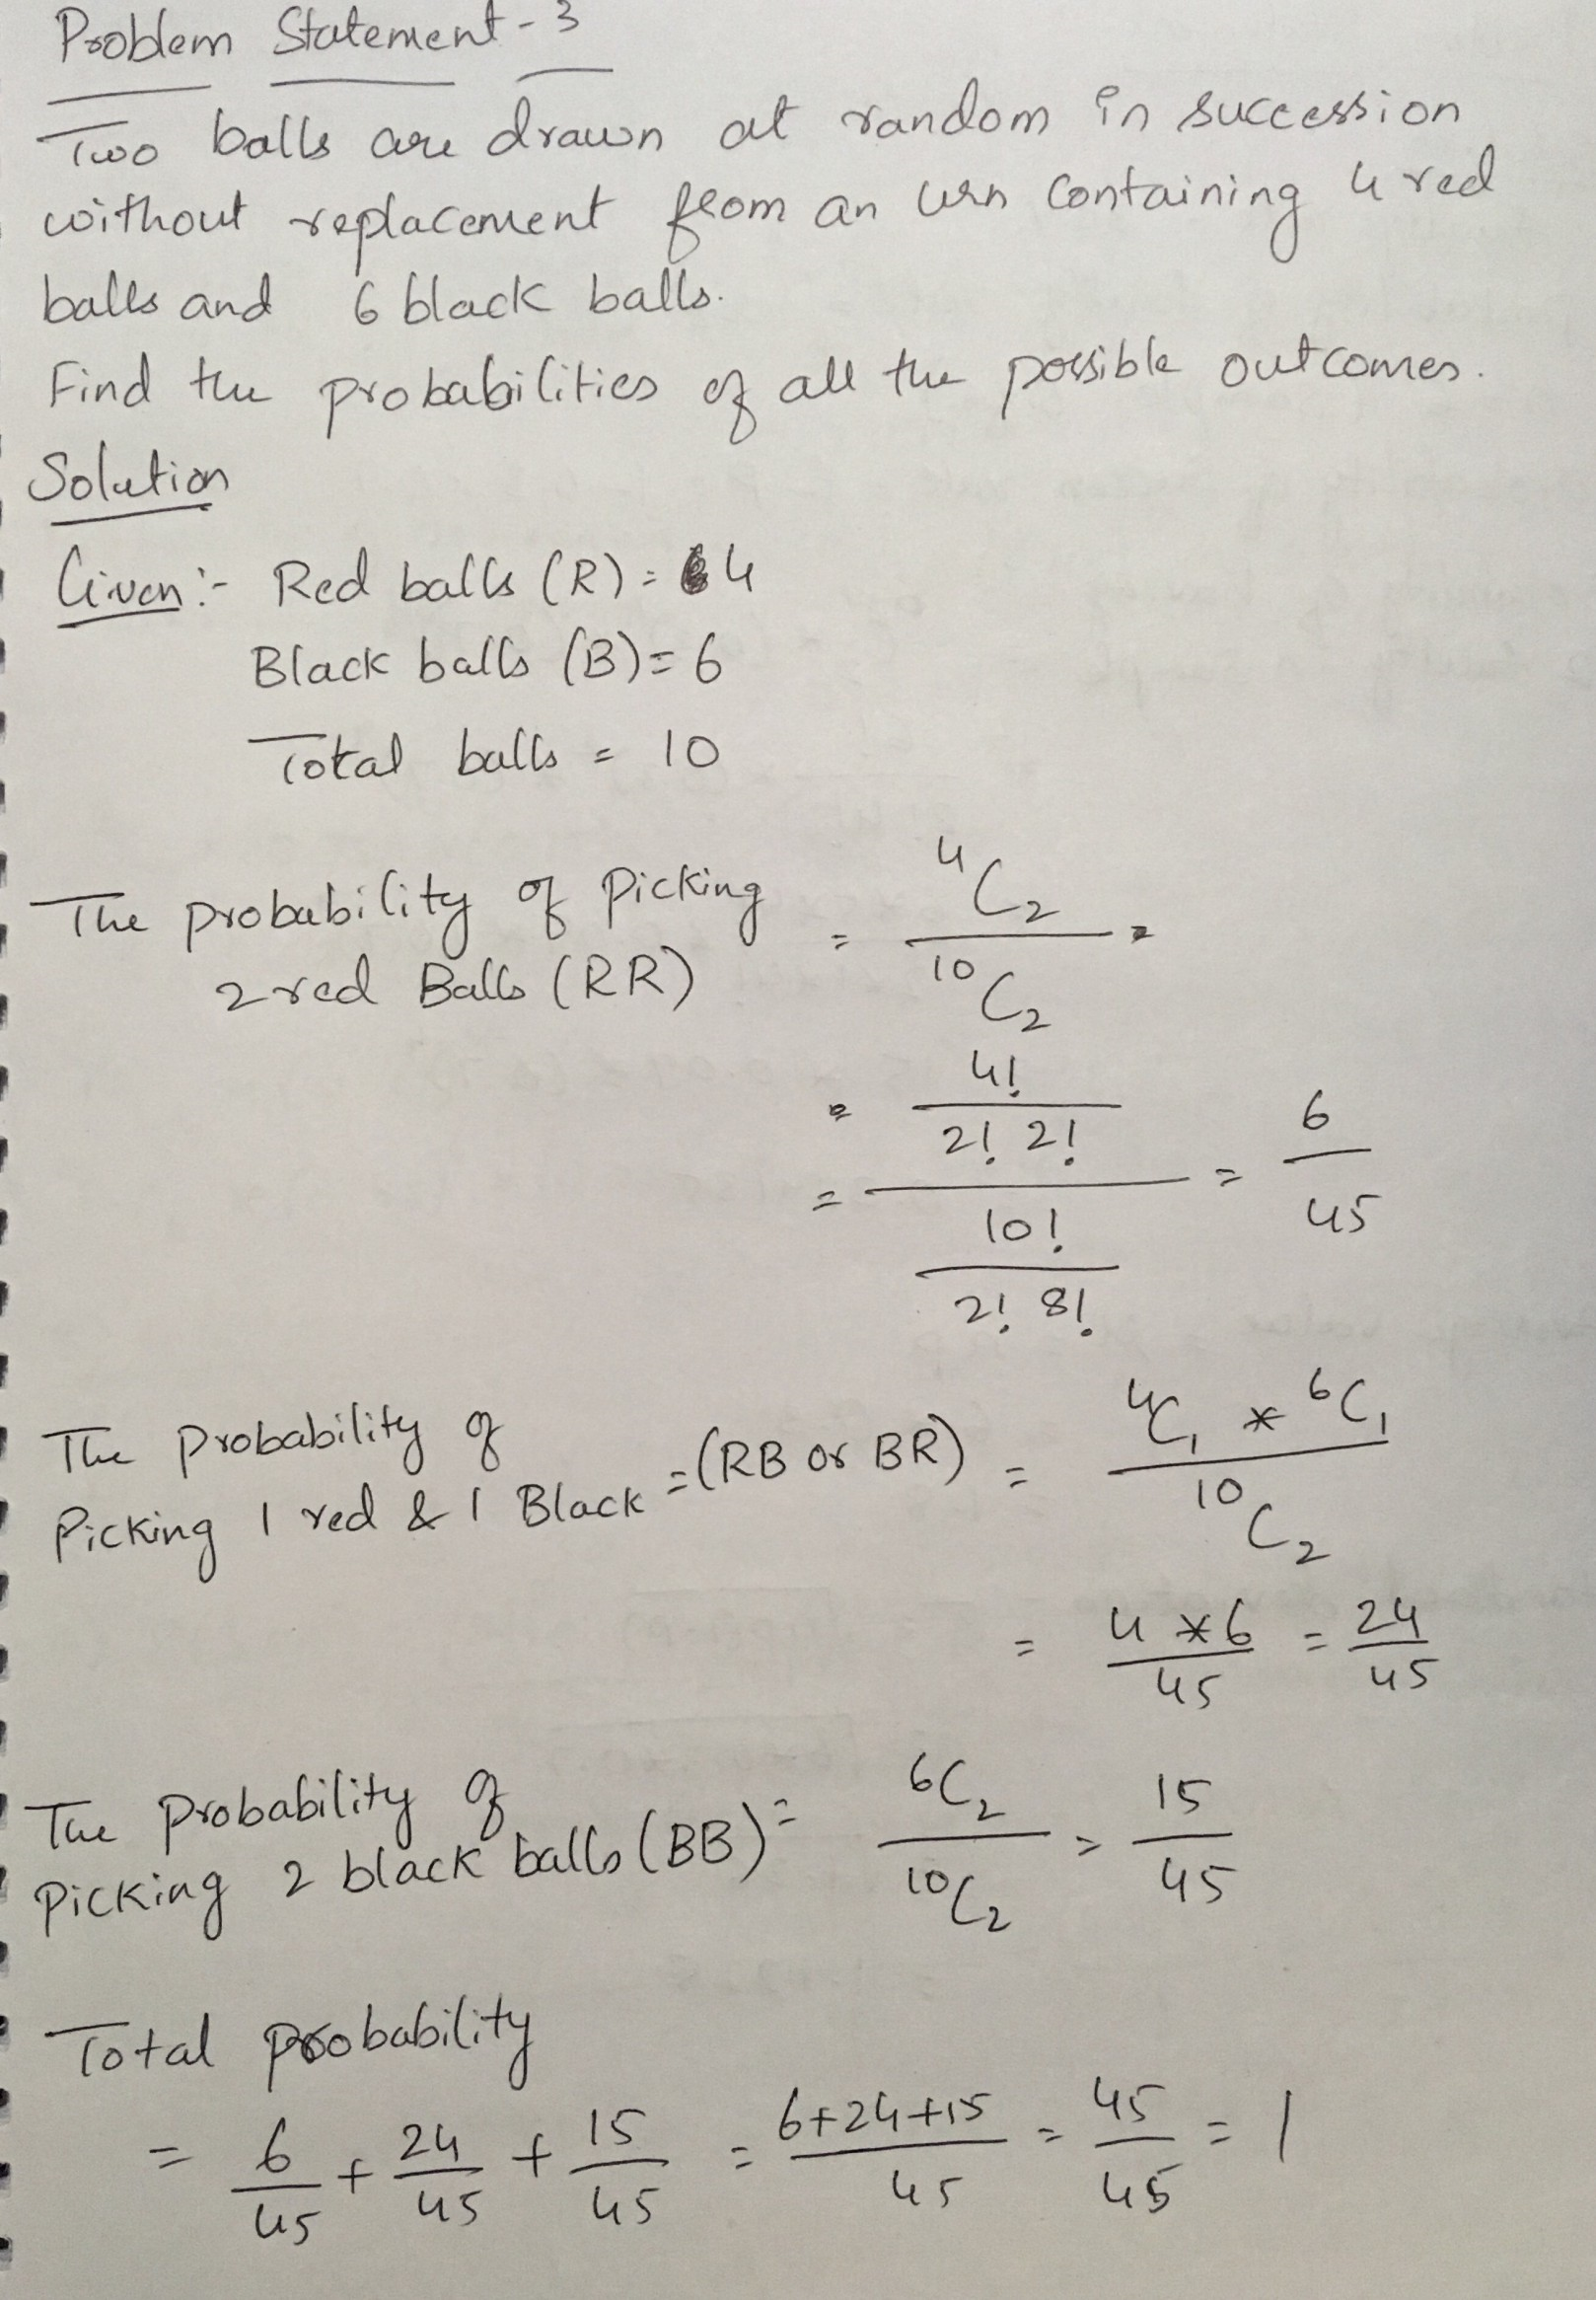 Problem Statement - 3
Two balls are drawn at random in succession
without replacement from an urn containing 4 red
balls and 6 black balls.
Find the probabilities of all the possible outcomes.
Solution
Given:- Red balls (R) = 4
Black balls (B) = 6
Total balls = 10
The probability of picking 2 red Balls (RR) = ⁴C₂ / ¹⁰C₂ =
= (4! / 2! 2!) / (10! / 2! 8!) = 6/45
The Probability of
Picking 1 red & 1 Black = (RB or BR) = ⁴C₁ * ⁶C₁ / ¹⁰C₂
= 4 * 6 / 45 = 24/45
The probability of
Picking 2 black balls (BB) = ⁶C₂ / ¹⁰C₂ = 15/45
Total probability
= 6/45 + 24/45 + 15/45 = 6+24+15 / 45 = 45/45 = 1